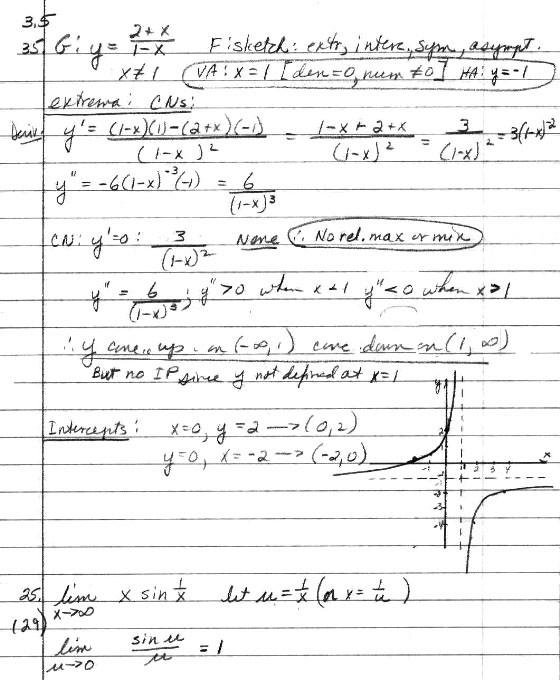 3.5
35. G: y = (2+x)/(1-x) F: sketch: extr, interc, sym, asympt.
x≠1 VA: x=1 [den=0, num ≠0] HA: y=-1
extrema: CNs:
Deriv y' = ((1-x)(1)-(2+x)(-1))/(1-x)² = (1-x+2+x)/(1-x)² = 3/(1-x)² = 3(1-x)⁻²
y" = -6(1-x)⁻³(-1) = 6/(1-x)³
CN: y'=0: 3/(1-x)² None ∴ No rel. max or min
y" = 6/(1-x)³; y">0 when x<1 y"<0 when x>1
∴ y conc. up on (-∞,1) conc. down on (1,∞)
But no IP since y not defined at x=1
Intercepts: x=0, y=2 → (0,2)
y=0, x=-2 → (-2,0)
y
2
x
-1 2 3 4
-1
-2
-3
-4
25. lim x→∞ x sin 1/x let u = 1/x (or x = 1/u)
(29)
lim u→0 sin u/u = 1